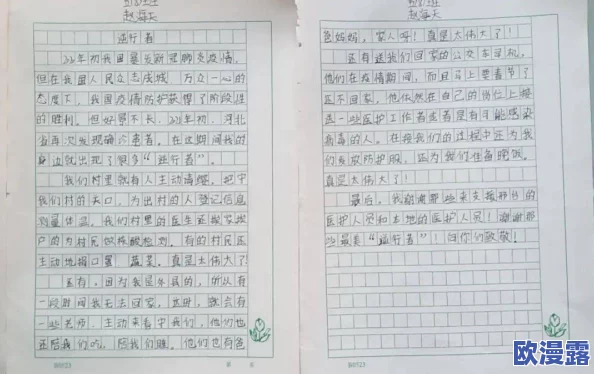 赵海天
逆行者
年初我国暴发新冠肺炎疫情,
但在我国人民众志成城 万众一心的
态度下,我国疫情防护获得了阶段性
的胜利。但好景不长,21年初,河北
省再次发现确诊患者。在这期间我的
身边就出现了很多“逆行者”。
我们村里就有人主动请缨,把守
我们村的关口,为出村的人登记信息
测量体温。我们村里的医生还挨家挨
户的为村民做核酸检测。有的村民还
主动地捐口罩 蔬菜。真是太伟大了!
还有,因为我是外县的,所以有
一段时间我无法回家,这时,就会有
一些老师,主动来看守我们,他们也
还陪我们吃,陪我们睡。他们也有爸
爸妈妈,家人呀!真是太伟大了!
还有送我们回家的公交车司机,
他们在疫情期间,而且马上要春节了
还不回家,他依然在自己的岗位上接
送一些医护工作者或者是有可能感染
病毒的人。在接我们的过程中还为我
们发放防护服,还为我们准备晚饭。
真是太伟大了!
最后,我感谢那些来支援邢台的
医护人员和本地的医护人员!谢谢那
些最美“逆行者”!向你们致敬!
欧漫露